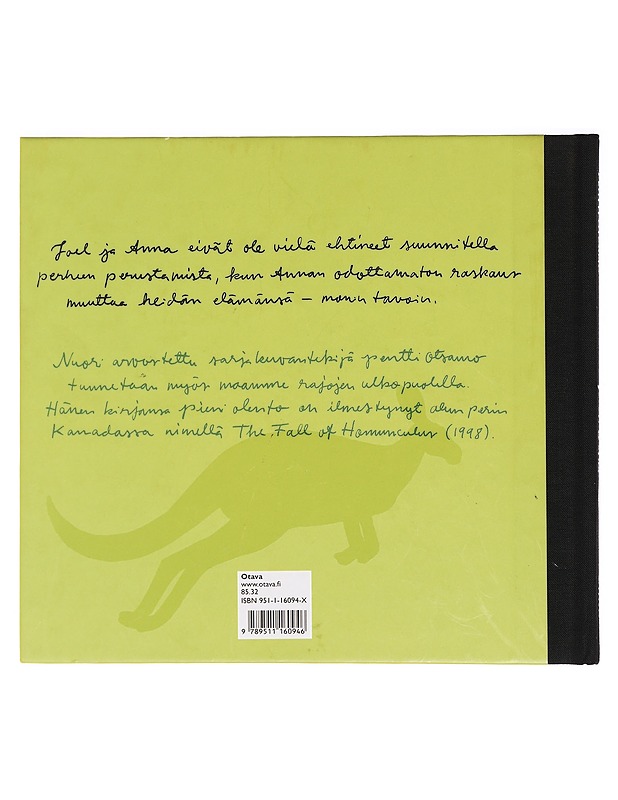 Joel ja Anna eivät ole vielä ehtineet suunnitella
perheen perustamista, kun Annan odottamaton raskaus
muuttaa heidän elämänsä – monin tavoin.
Nuori arvostettu sarjakuvantekijä pentti otsamo
tunnetaan myös maamme rajojen ulkopuolella.
Hänen kirjansa pieni olento on ilmestynyt alun perin
Kanadassa nimellä The Fall of Homunculus (1998).
Otava
www.otava.fi
85.32
ISBN 951-1-16094-X
9 789511 160946